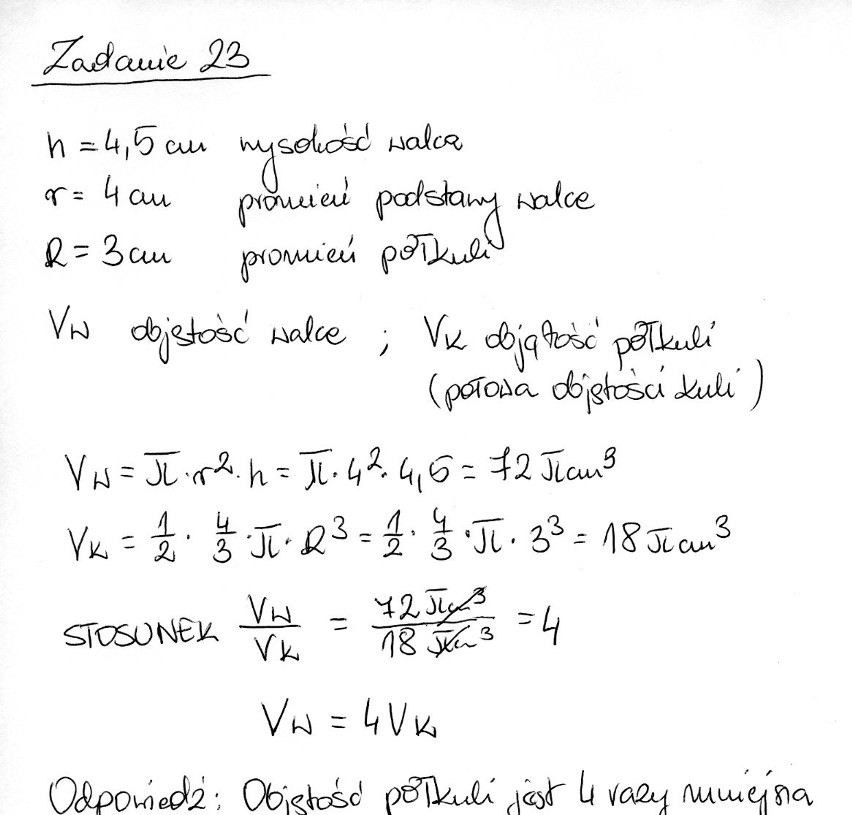 Zadanie 23
h = 4,5 cm wysokość walca
r = 4 cm promień podstawy walca
R = 3 cm promień półkuli
Vw objętość walca ; Vk objętość półkuli
(połowa objętości kuli)
Vw = π · r² · h = π · 4² · 4,5 = 72 π cm³
Vk = 1/2 · 4/3 · π · R³ = 1/2 · 4/3 · π · 3³ = 18 π cm³
STOSUNEK Vw/Vk = 72 π cm³/18 π cm³ = 4
Vw = 4Vk
Odpowiedź: Objętość półkuli jest 4 razy mniejsza